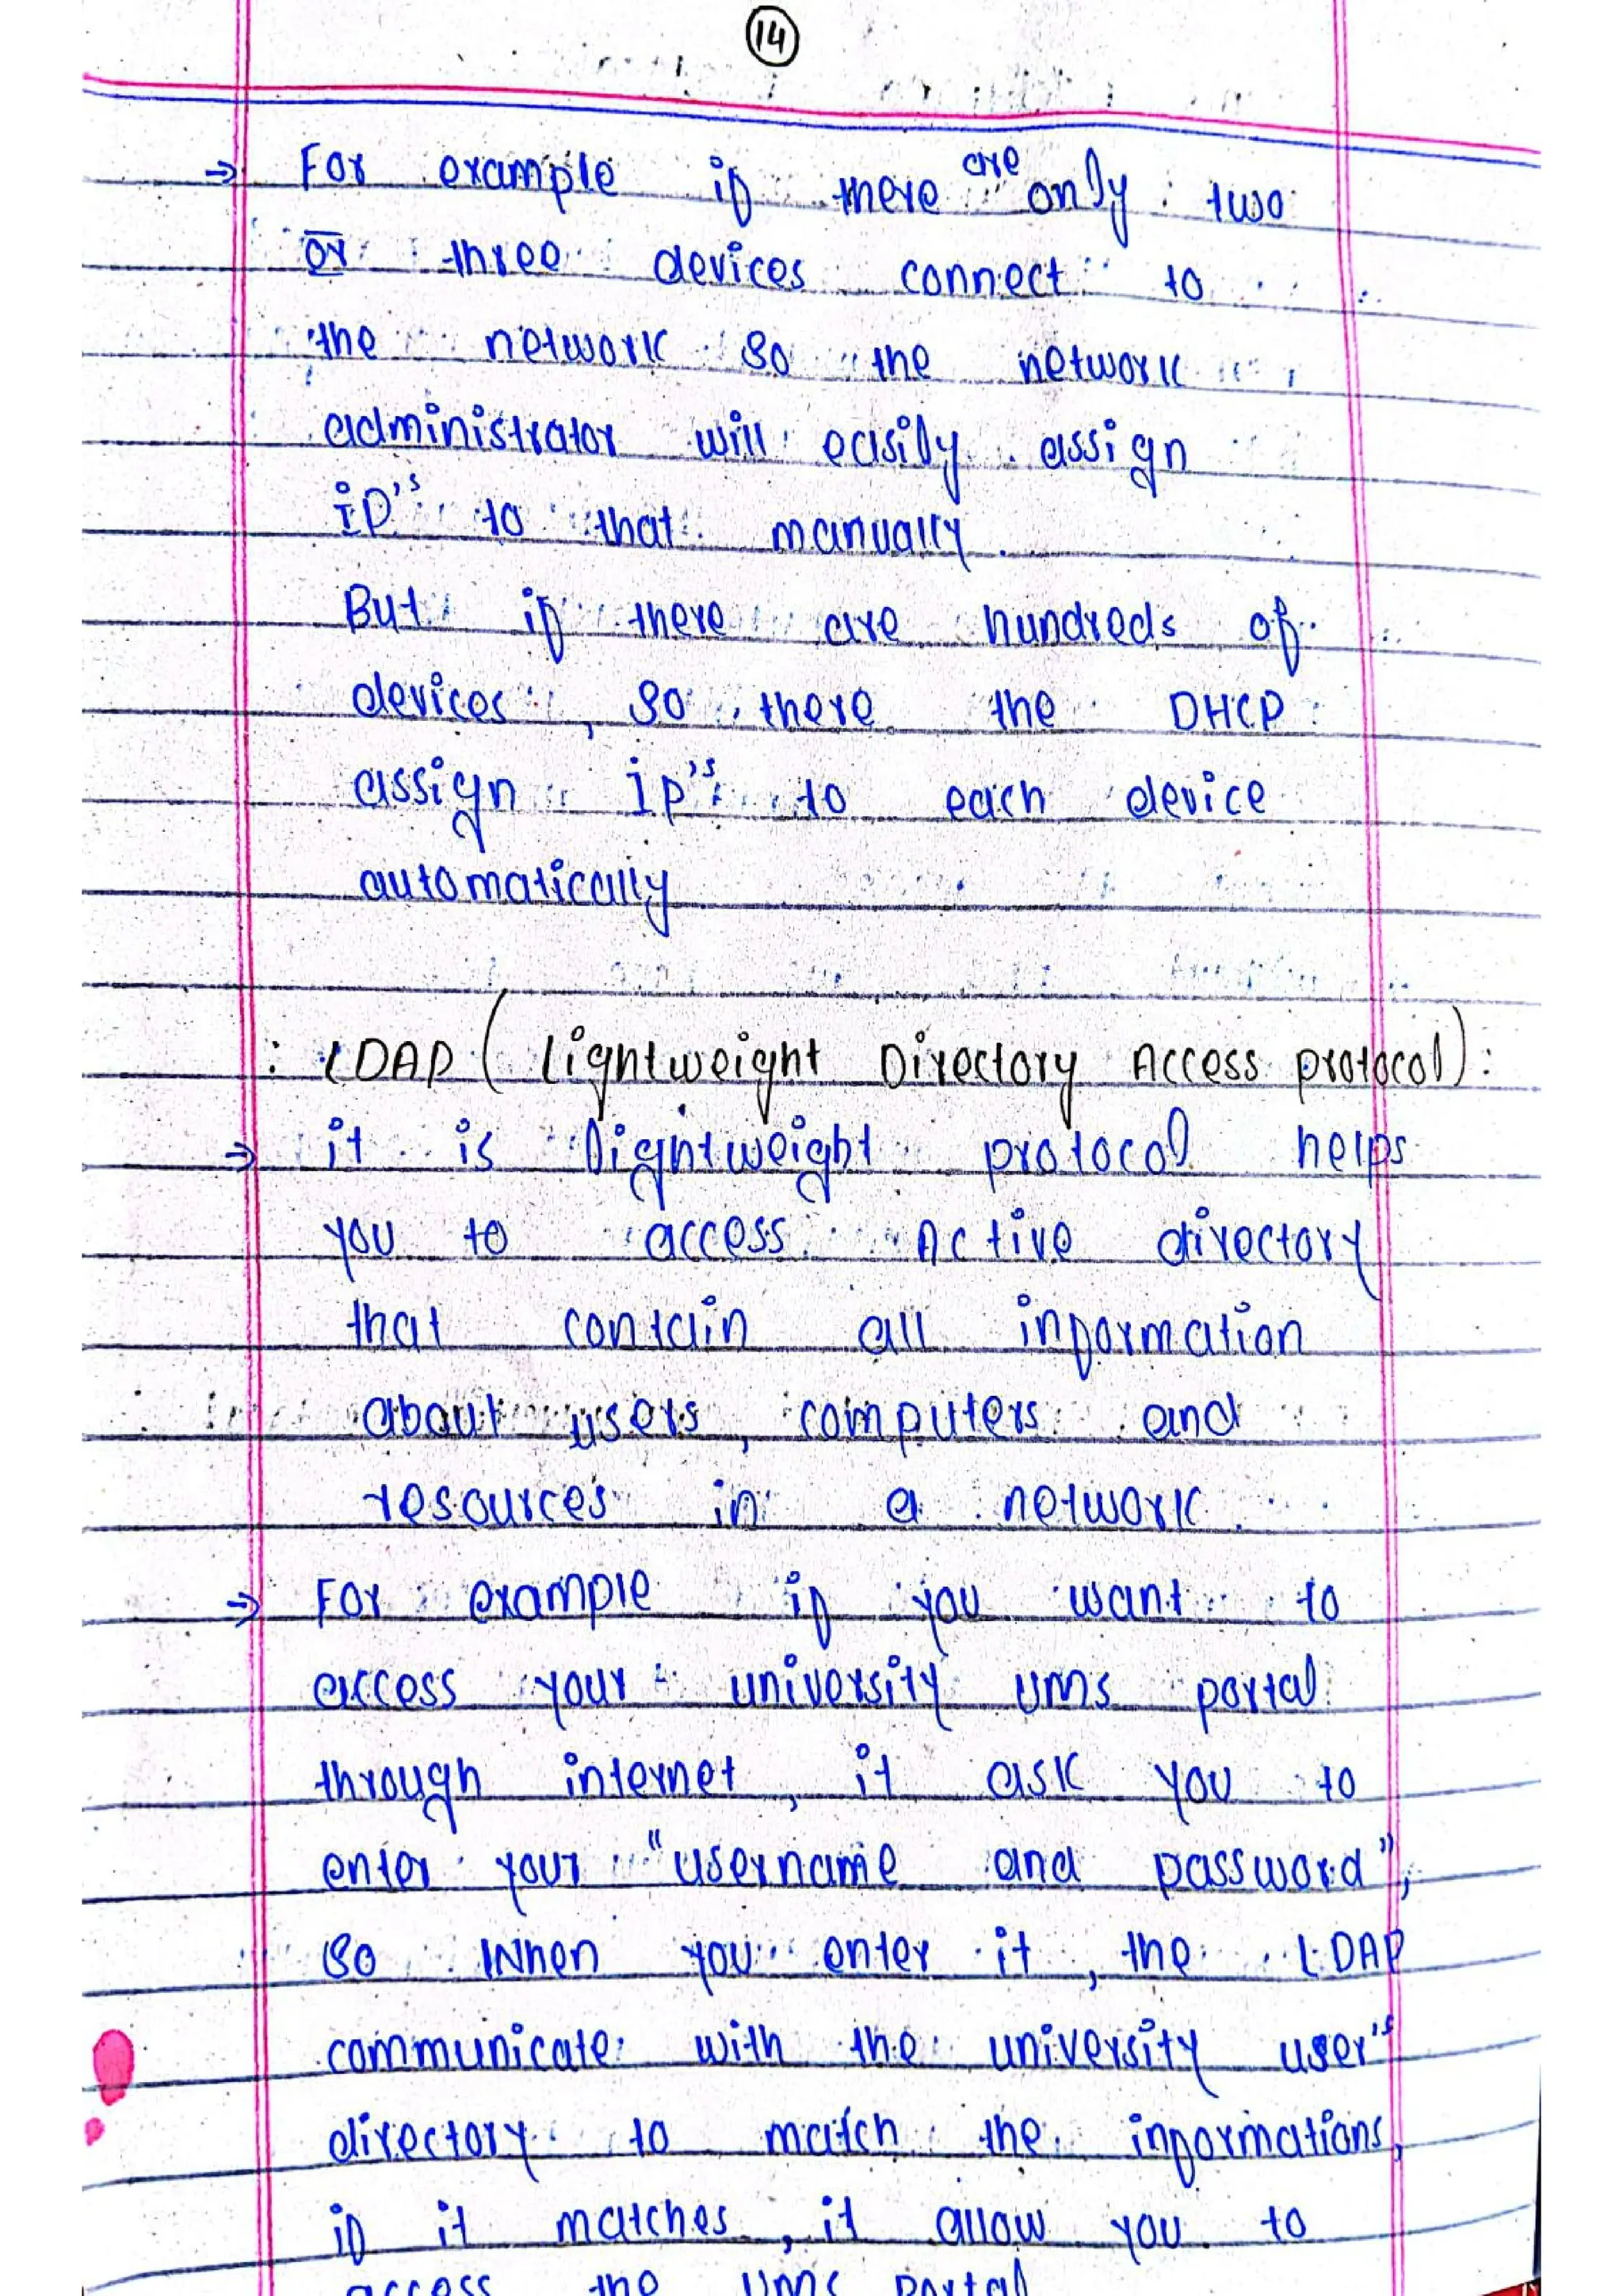 14
⇒ For example if there are only two
or three devices connect to
the network so the network
administrator will easily assign
IP's to that manually.
But if there are hundreds of
devices, so there the DHCP
assign IP's to each device
automatically
: LDAP (Lightweight Directory Access protocol):
⇒ it is lightweight protocol helps
you to access Active directory
that contain all information
about users, computers and
resources in a network.
⇒ For example if you want to
access your university UMS portal
through internet, it ask you to
enter your "username and password",
so When you enter it, the LDAP
communicate with the university user's
directory to match the informations,
if it matches, it allow you to
access the UMS portal